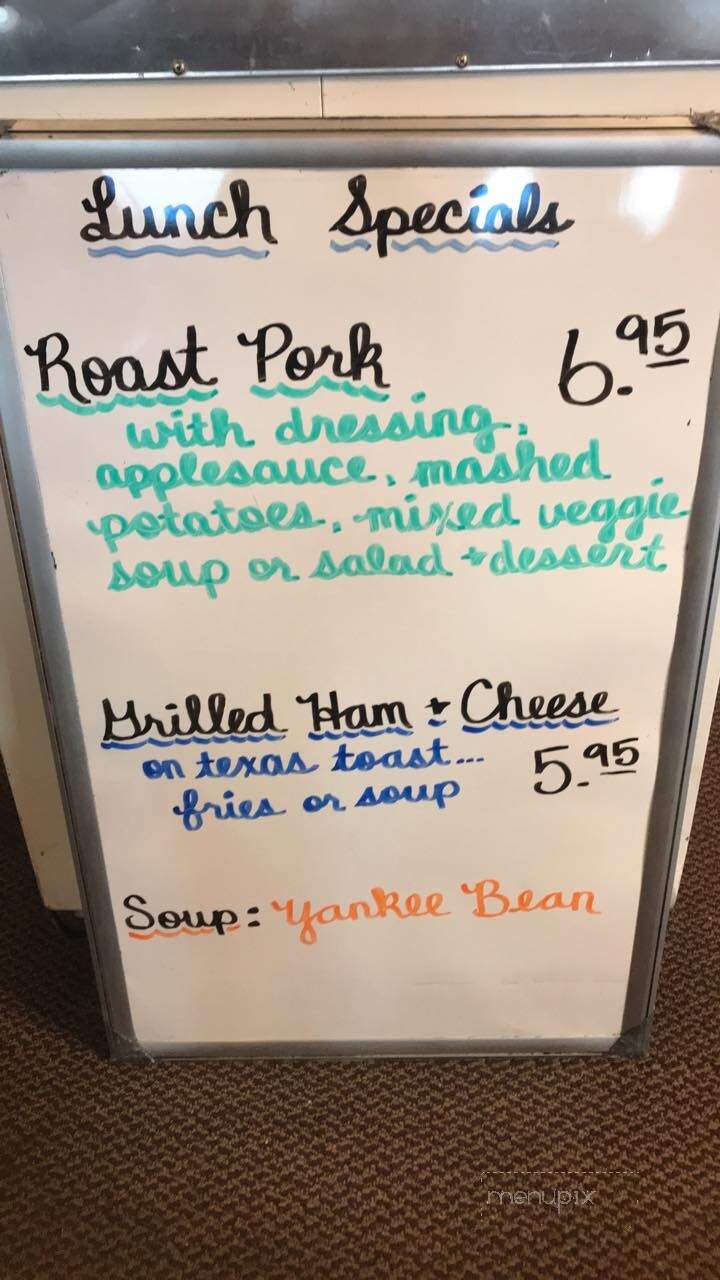 Lunch Specials
Roast Pork 6.95
with dressing,
applesauce, mashed
potatoes, mixed veggie
soup or salad + dessert
Grilled Ham + Cheese
on texas toast... 5.95
fries or soup
Soup: Yankee Bean
menupix